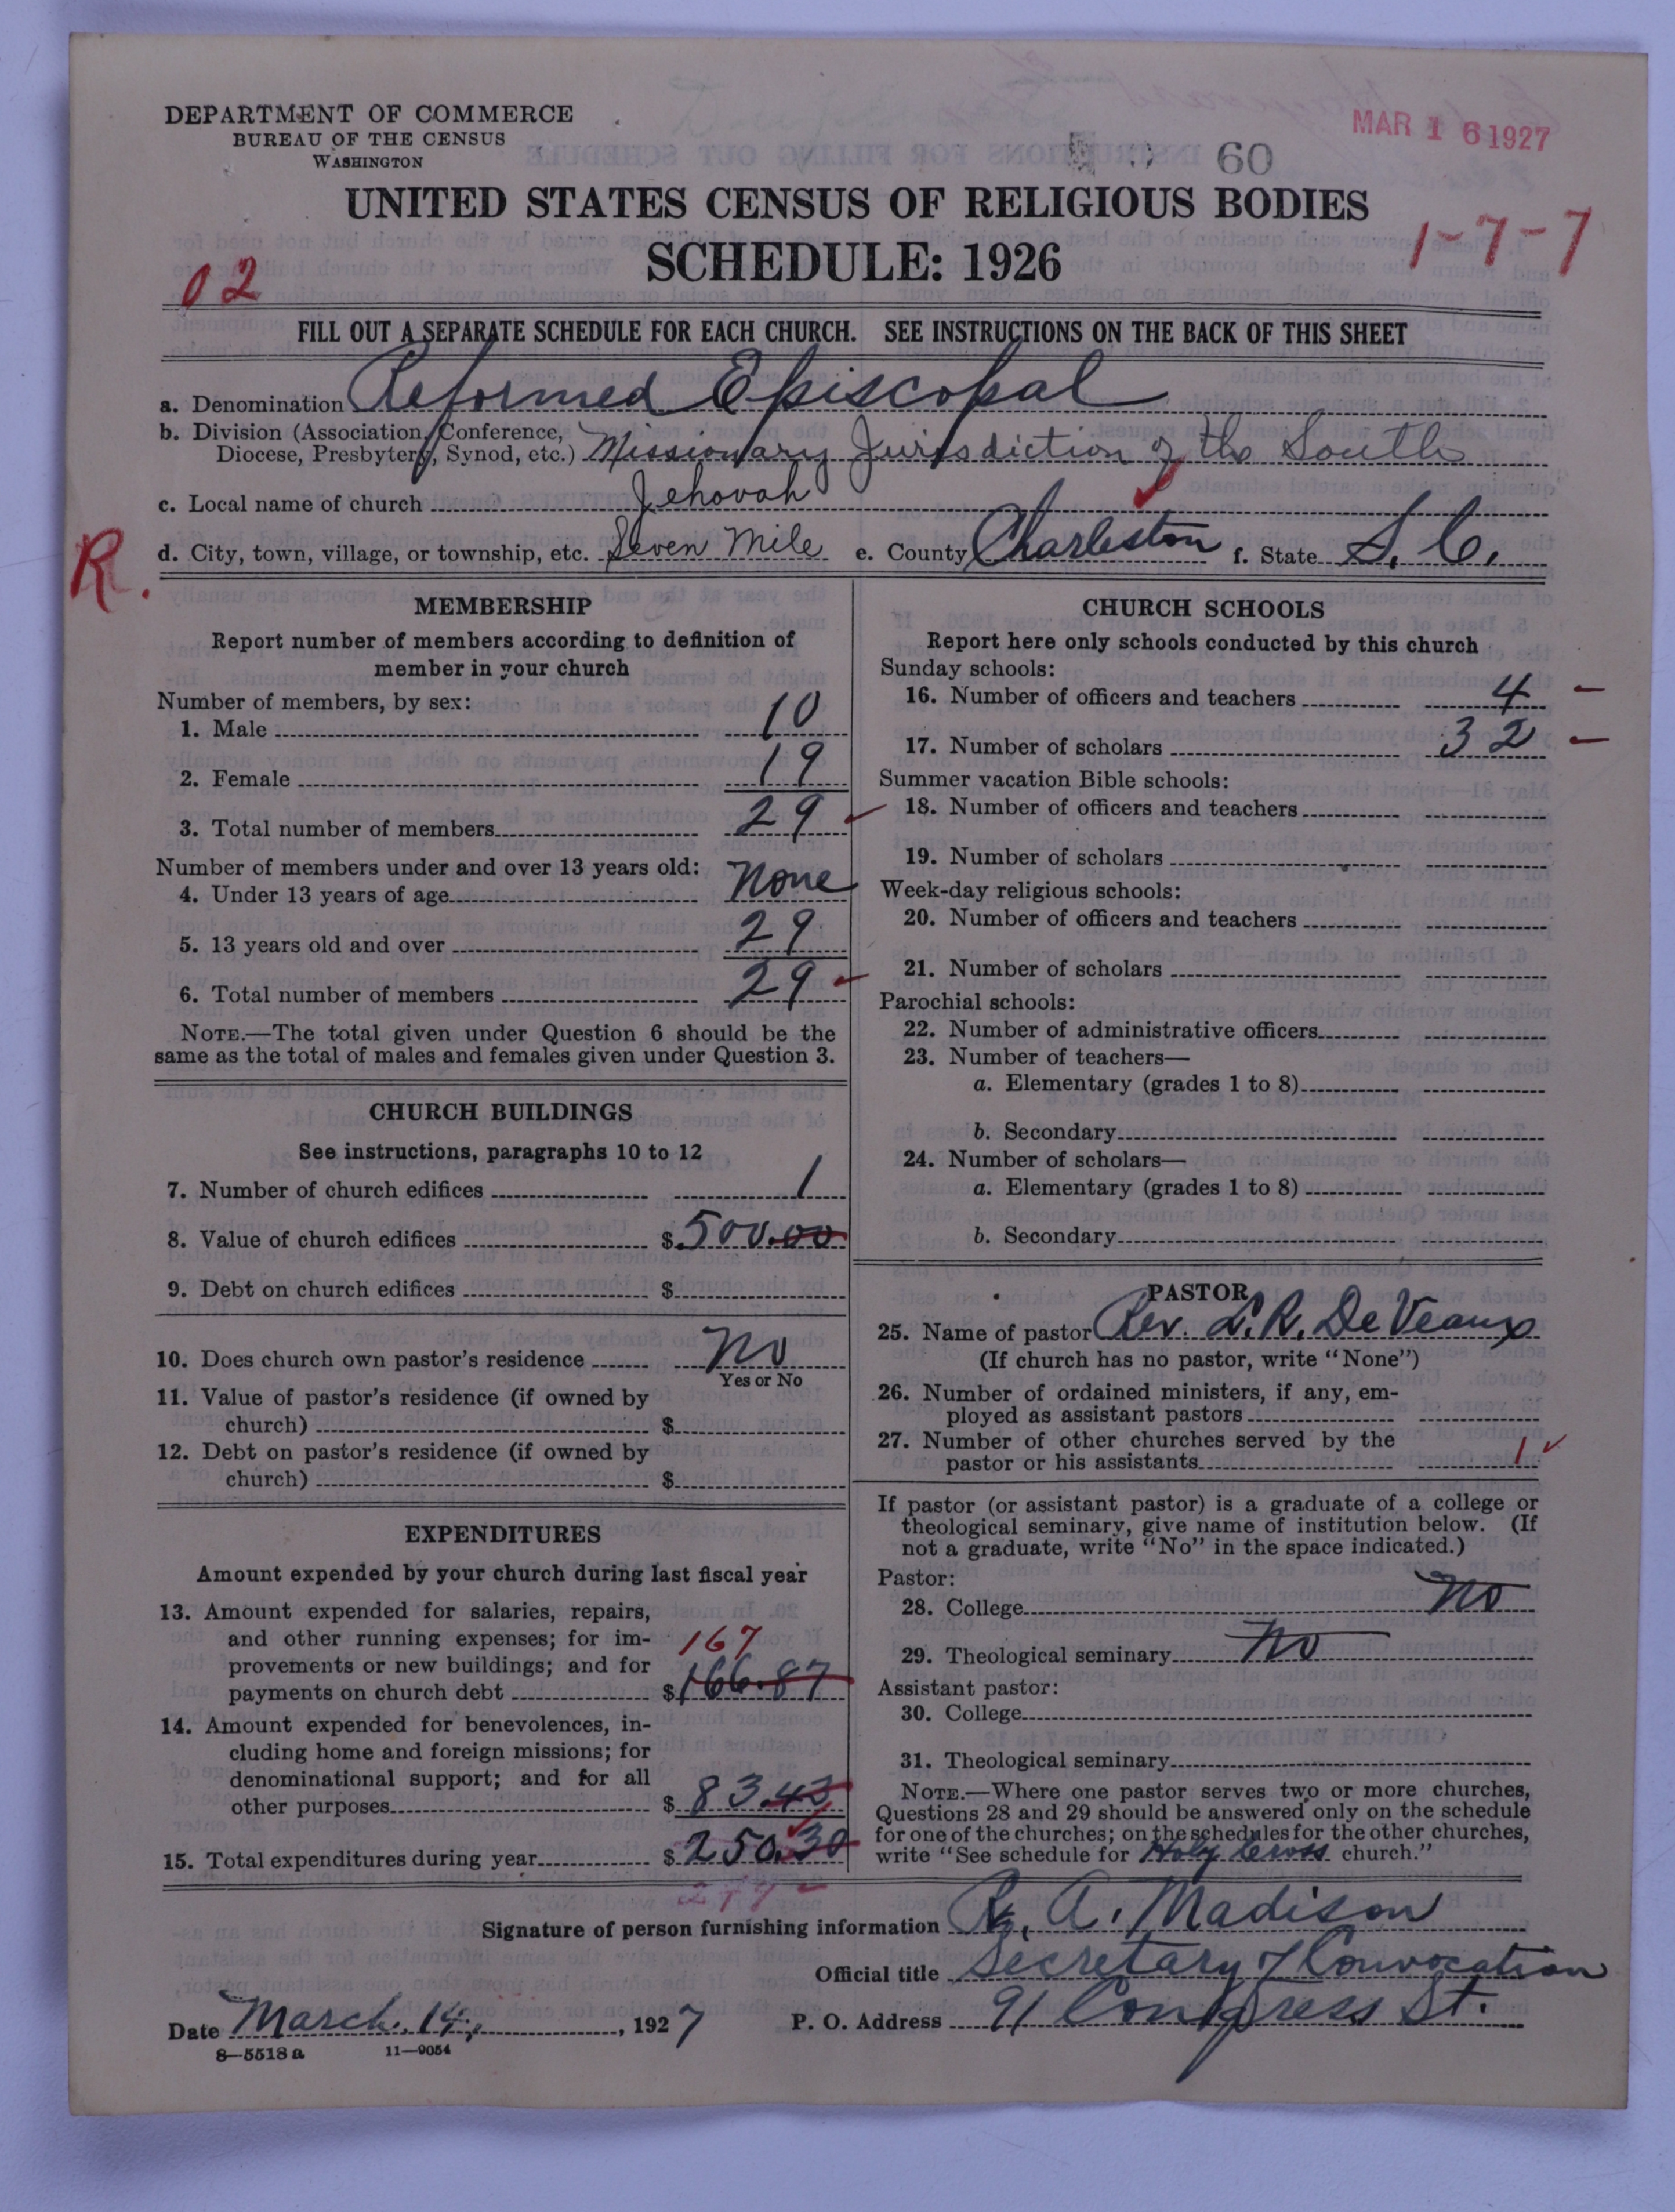 DEPARTMENT OF COMMERCE
BUREAU OF THE CENSUS
WASHINGTON
MAR 16 1927
60
UNITED STATES CENSUS OF RELIGIOUS BODIES
SCHEDULE: 1926
1-7-7
02
FILL OUT A SEPARATE SCHEDULE FOR EACH CHURCH. SEE INSTRUCTIONS ON THE BACK OF THIS SHEET
a. Denomination Reformed Episcopal
b. Division (Association, Conference,
Diocese, Presbytery, Synod, etc.) Missionary Jurisdiction of the South
c. Local name of church Jehovah
R. d. City, town, village, or township, etc. Seven Mile e. County Charleston f. State S. C.
MEMBERSHIP
Report number of members according to definition of
member in your church
Number of members, by sex:
1. Male 10
2. Female 19
3. Total number of members 29
Number of members under and over 13 years old:
4. Under 13 years of age None
5. 13 years old and over 29
6. Total number of members 29
NOTE.—The total given under Question 6 should be the
same as the total of males and females given under Question 3.
CHURCH BUILDINGS
See instructions, paragraphs 10 to 12
7. Number of church edifices 1
8. Value of church edifices $500.00
9. Debt on church edifices $
10. Does church own pastor's residence No
Yes or No
11. Value of pastor's residence (if owned by
church) $
12. Debt on pastor's residence (if owned by
church) $
EXPENDITURES
Amount expended by your church during last fiscal year
13. Amount expended for salaries, repairs,
and other running expenses; for im-
167
provements or new buildings; and for
payments on church debt $166.87
14. Amount expended for benevolences, in-
cluding home and foreign missions; for
denominational support; and for all
other purposes $83.43
15. Total expenditures during year $250.30
CHURCH SCHOOLS
Report here only schools conducted by this church
Sunday schools:
16. Number of officers and teachers 4 –
17. Number of scholars 32 –
Summer vacation Bible schools:
18. Number of officers and teachers
19. Number of scholars
Week-day religious schools:
20. Number of officers and teachers
21. Number of scholars
Parochial schools:
22. Number of administrative officers
23. Number of teachers—
a. Elementary (grades 1 to 8)
b. Secondary
24. Number of scholars—
a. Elementary (grades 1 to 8)
b. Secondary
PASTOR
25. Name of pastor Rev. L. R. De Veaux
(If church has no pastor, write "None")
26. Number of ordained ministers, if any, em-
ployed as assistant pastors
27. Number of other churches served by the
pastor or his assistants 1
If pastor (or assistant pastor) is a graduate of a college or
theological seminary, give name of institution below. (If
not a graduate, write "No" in the space indicated.)
Pastor:
28. College No
29. Theological seminary No
Assistant pastor:
30. College
31. Theological seminary
NOTE.—Where one pastor serves two or more churches,
Questions 28 and 29 should be answered only on the schedule
for one of the churches; on the schedules for the other churches,
write "See schedule for Holy Cross church."
Signature of person furnishing information A. Madison
Official title Secretary of Convocation
Date March 14, 1927 P. O. Address 91 Congress St.
8—5518 a 11—9054